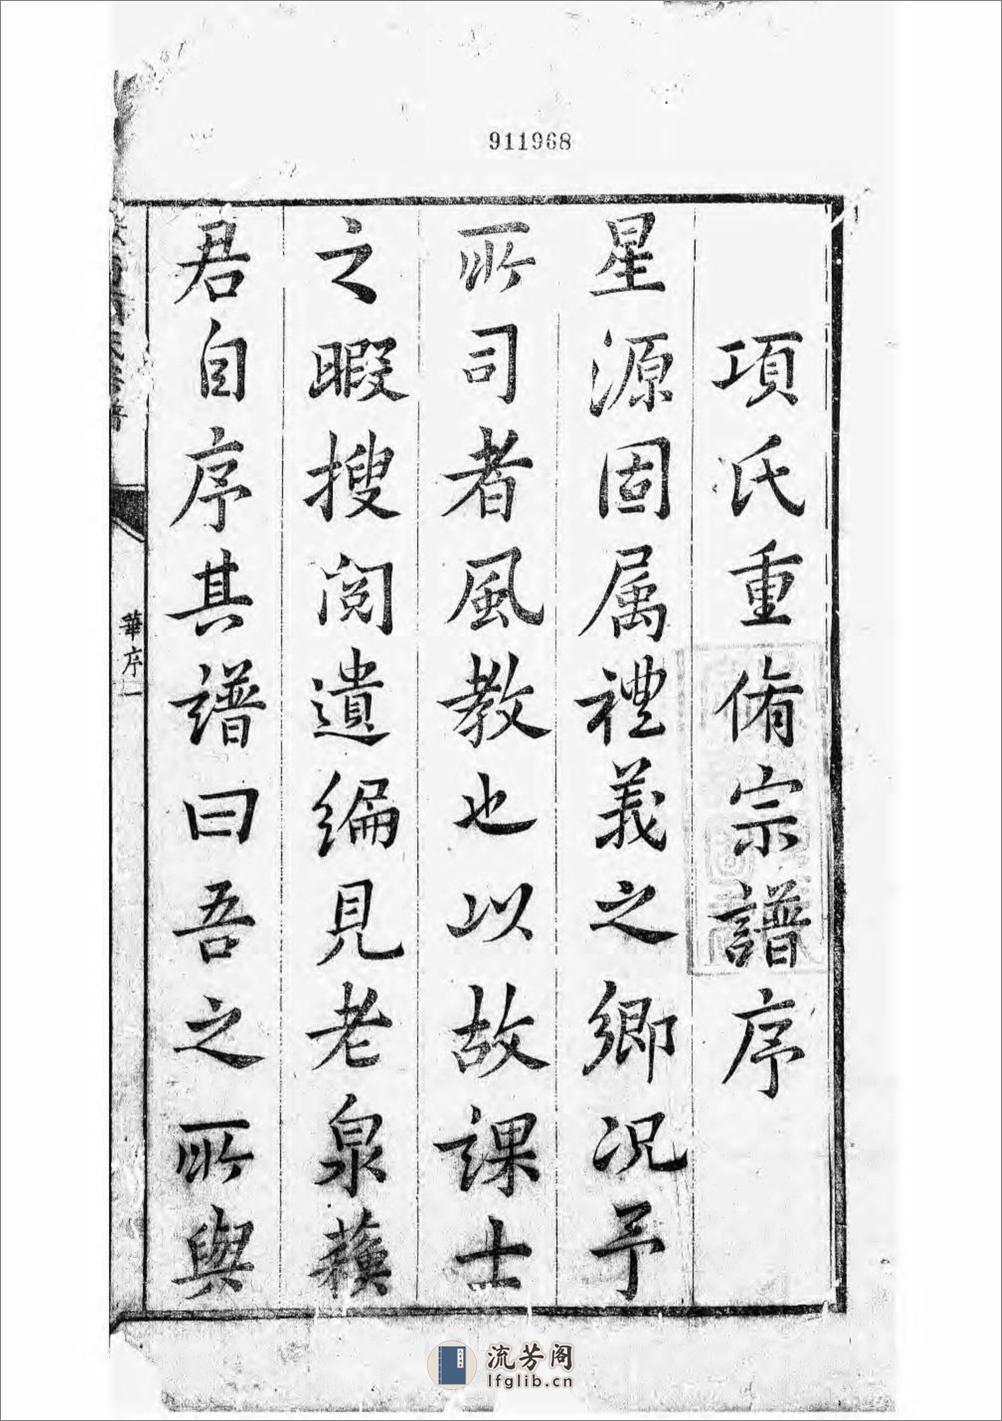 911968
項氏重脩宗譜序
星源固属禮義之鄉况予
所司者風教也以故課士
之暇搜閲遺編見老泉蘓
君自序其譜曰吾之所與
華序一
流芳阁
lfglib.cn